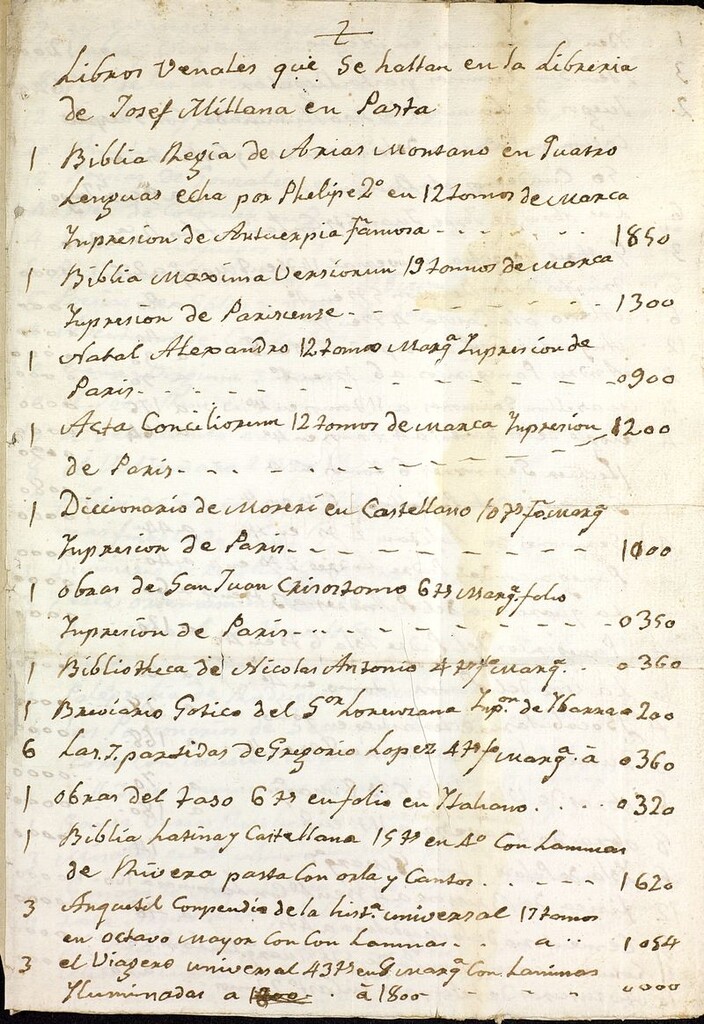 2
Libros Venales que se hallan en la Libreria
de Josef Millana en Pasta
1 Biblia Regia de Arias Montano en Quatro
Lenguas echa por Phelipe 2º en 12 tomos de Marca
Inpresion de Antuerpia Famosa - - - - 1850
1 Biblia Maxima Versionum 19 tomos de Marca
Inpresion de Parisiense - - - - 1300
1 Natal Alexandro 12 tomos Marqª Inpresion de
Paris - - - - 0900
1 Acta Conciliorum 12 tomos de Marca Inpresion 1200
de Paris - - - -
1 Diccionario de Moreri en Castellano 10 ts fº Marqª
Inpresion de Paris - - - - 1000
1 obras de San Juan Crisostomo 6 ts Marqª folio
Inpresion de Paris - - - - 0350
1 Bibliotheca de Nicolas Antonio 4 ts fº Marqª. 0360
1 Breviario Gotico del Sor Lorenzana Inpon. de Ibarra 0200
6 Las 7. partidas de Gregorio Lopez 4 ts fº Marqª. á 0360
1 obras del taso 6 ts en folio en Italiano. . . . 0320
1 Biblia Latina y Castellana 15 ts en 4º Con Laminas
de Rivera pasta Con orla y Cantos. . - - - 1620
3 Anquetil Conpendio de la histª universal 17 tomos
en octavo Mayor Con Con Laminas. . a . . 1054
3 el Viagero universal 43 ts en 8 Marqª Con Laminas
Iluminadas a 1800 . á 1800 - - - 0000